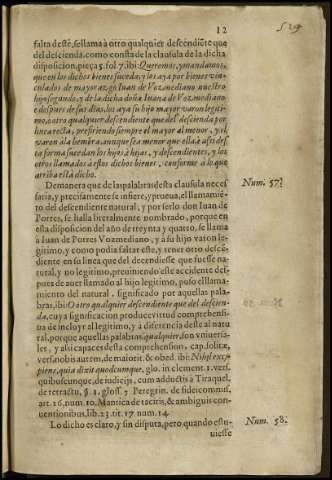 12
529
falta deste, se llama à otro qualquier descendiẽte que
del descienda, como consta de la clausula de la dicha
disposicion, pieça 5. fol. 7. ibi: Queremos, y mandamos,
que en los dichos bienes suceda, y los aya por bienes vin-
culados de mayorazgo Iuan de Vozmediano nuestro
hijo segundo, y de la dicha doña Iuana de Vozmediano
despues de sus dias, los aya su hijo mayor varon legiti-
mo, ò otro qualquier descendiente que del descienda por
linea recta, prefiriendo siempre el mayor al menor, y el
varon ala hembra, aunque sea menor que ella, à assi des-
ta forma sucedan los hijos à hijas, y descendientes, y los
otros llamados à estos dichos bienes, conforme à lo que
arriba està dicho.
Demanera que de las palabras desta clausula neces
saria, y precisamente se infiere, y prueua, el llamamiẽ-
to del descendiente natural, y por serlo don Iuan de
Porres, se halla literalmente nombrado, porque en
esta disposicion del año de treynta y quatro, se llama
à Iuan de Porres Vozmediano, y à su hijo varon le-
gitimo, y como podia faltar este, y tener otro descẽ-
diente en su linea que del decendiesse que fuesse na-
tural, y no legitimo, preuiniendo este accidente des-
pues de auer llamado al hijo legitimo, puso el llama-
miento del natural, significado por aquellas pala-
bras, ibi: O otro qualquier descendiente que del descien-
da, cuya significacion produce virtud comprehensi-
ua de incluyr al legitimo, y à diferencia deste al natu-
ral, porque aquellas palabras, qualquier, son vniuersa-
les, y assi capaces desta comprehension, cap. solitæ,
vers. nobis autem, de maiorit. & obed. ibi: Nihil exci-
piens, quia dixit quodcumque. glo. in clement. 1. vers.
quibuscunque, de iudicijs, cum adductis à Tiraquel.
de retractu, §. 1. gloss. 7 Peregrin. de fideicommis.
art. 26. num. 10. Mantica de tacitis, & ambiguis con-
uentionibus, lib. 23. tit. 17. num. 14.
Lo dicho es claro, y sin disputa, pero quando estu-
uiesse
Num. 57.
Num. 58.